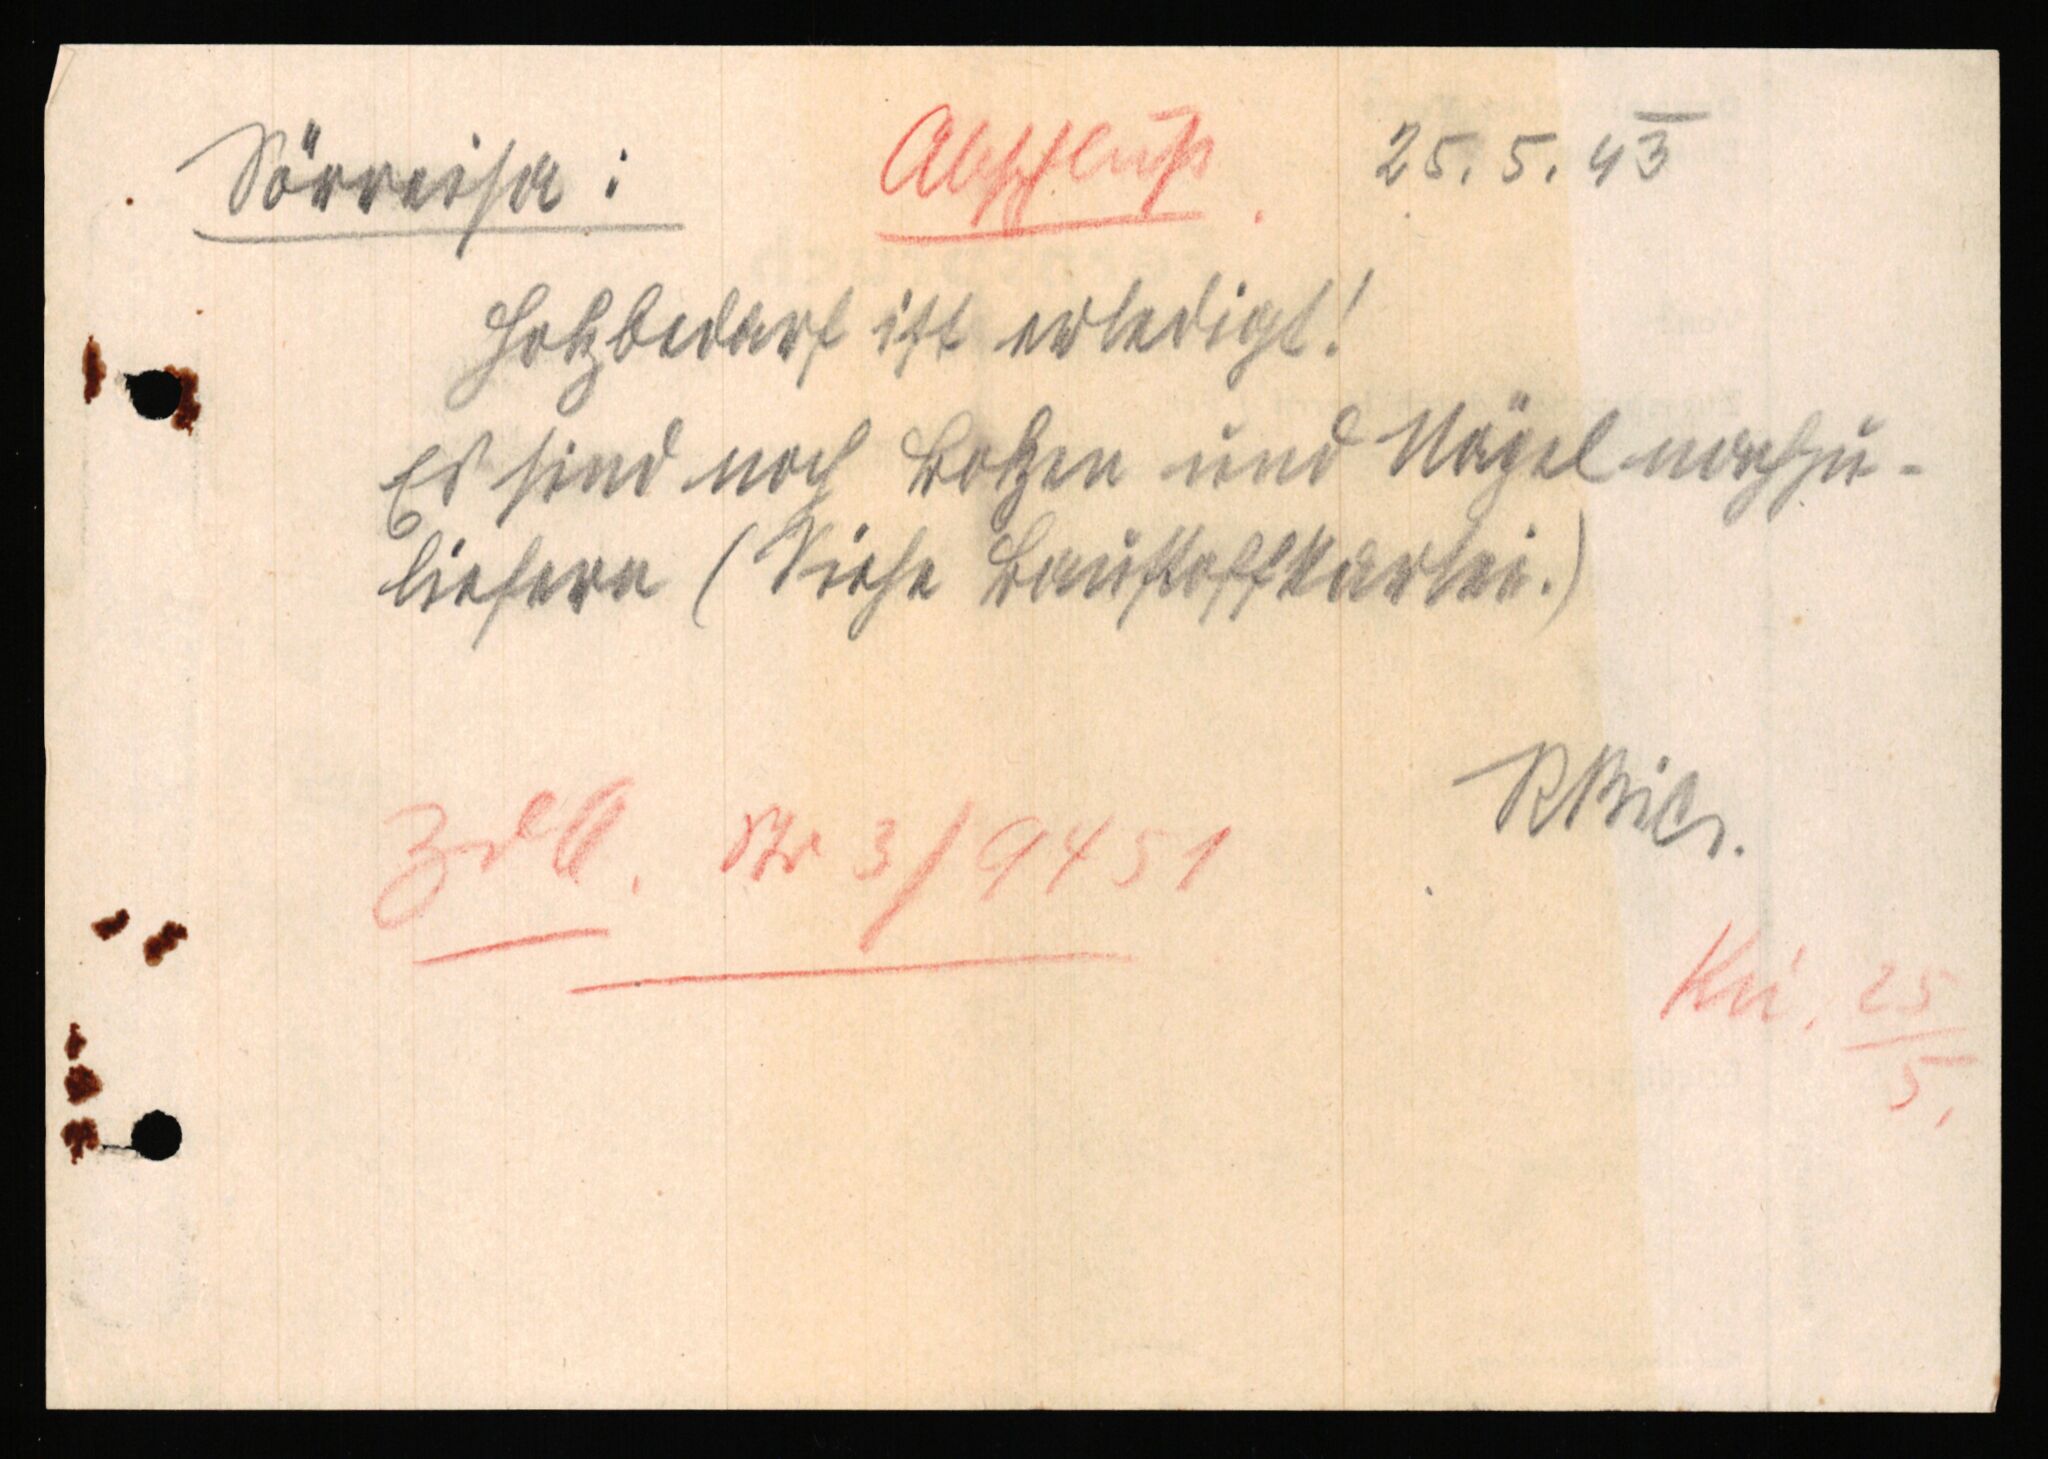 Sörreisa: Abschluß. 25.5.43
Holzbedarf ist erledigt!
Es sind noch Bolzen und Nägel nachzu-
liefern (Siehe Baustoffkartei.)
ZdA. Str 3/9451
Kü. 25/5.